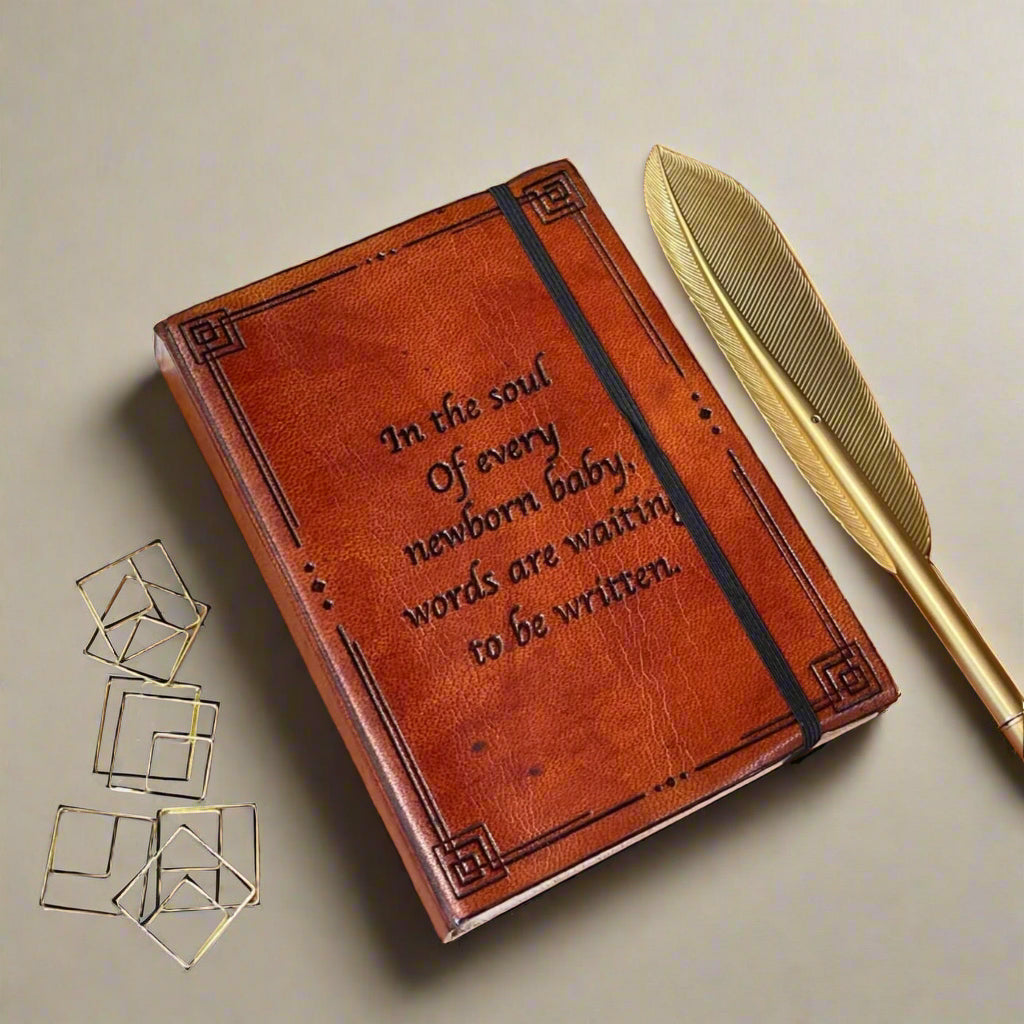 In the soul
Of every
newborn baby,
words are waiting
to be written.